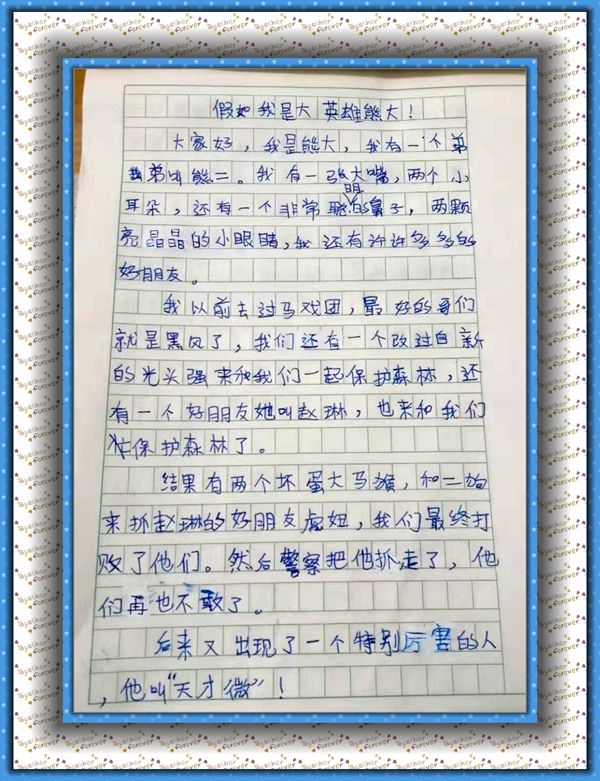 假如我是大英雄熊大！
大家好，我是熊大，我有一个弟
弟叫熊二。我有一张大嘴，两个小
耳朵，还有一个非常聪明的鼻子，两颗
亮晶晶的小眼睛，我还有许许多多的
好朋友。
我以前去过马戏团，最好的哥们
就是黑风了，我们还有一个改过自新
的光头强来和我们一起保护森林，还
有一个好朋友她叫赵琳，也来和我们
保护森林了。
结果有两个坏蛋大马猴，和二狗
来抓赵琳的好朋友虎妞，我们最终打
败了他们。然后警察把他抓走了，他
们再也不敢了。
后来又出现了一个特别厉害的人
，他叫“天才微”！
Together
Forever